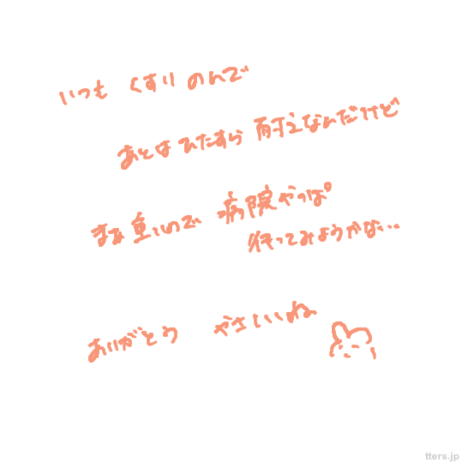 いつも くすり のんで
あとは ひたすら 耐えなんだけど
まあ 重いので 病院 やっぱ
行ってみようかな…
ありがとう やさしいね
tters.jp